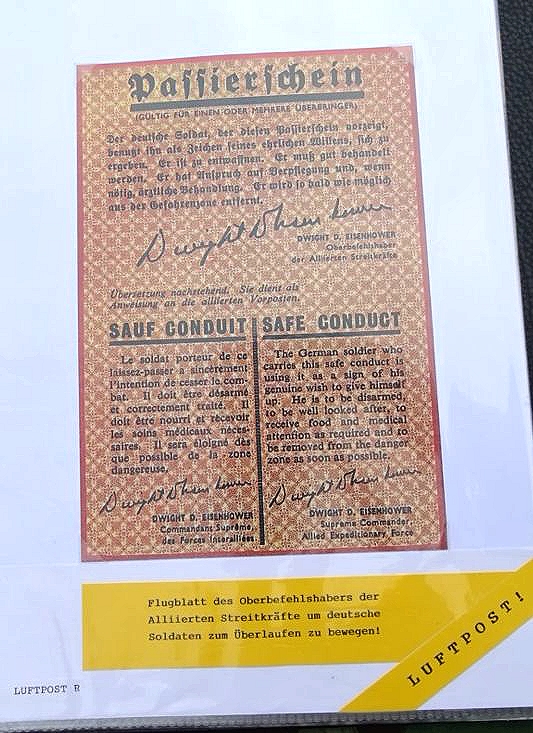 Passierschein
(GÜLTIG FÜR EINEN ODER MEHRERE ÜBERBRINGER)
Der deutsche Soldat, der diesen Passierschein vorzeigt,
benutzt ihn als Zeichen seines ehrlichen Willens, sich zu
ergeben. Er ist zu entwaffnen. Er muß gut behandelt
werden. Er hat Anspruch auf Verpflegung und, wenn
nötig, ärztliche Behandlung. Er wird so bald wie möglich
aus der Gefahrenzone entfernt.
Dwight D. Eisenhower
DWIGHT D. EISENHOWER
Oberbefehlshaber
der Alliierten Streitkräfte
Übersetzung nachstehend. Sie dient als
Anweisung an die alliierten Vorposten.
SAUF CONDUIT
Le soldat porteur de ce
laissez-passer a sincèrement
l'intention de cesser le com-
bat. Il doit être désarmé
et correctement traité. Il
doit être nourri et recevoir
les soins médicaux néces-
saires. Il sera éloigné dès
que possible de la zone
dangereuse.
Dwight D. Eisenhower
DWIGHT D. EISENHOWER
Commandant Suprême,
des Forces Interalliées
SAFE CONDUCT
The German soldier who
carries this safe conduct is
using it as a sign of his
genuine wish to give himself
up. He is to be disarmed,
to be well looked after, to
receive food and medical
attention as required and to
be removed from the danger
zone as soon as possible.
Dwight D. Eisenhower
DWIGHT D. EISENHOWER
Supreme Commander,
Allied Expeditionary Force
Flugblatt des Oberbefehlshabers der
Alliierten Streitkräfte um deutsche
Soldaten zum Überlaufen zu bewegen!
LUFTPOST!
LUFTPOST R